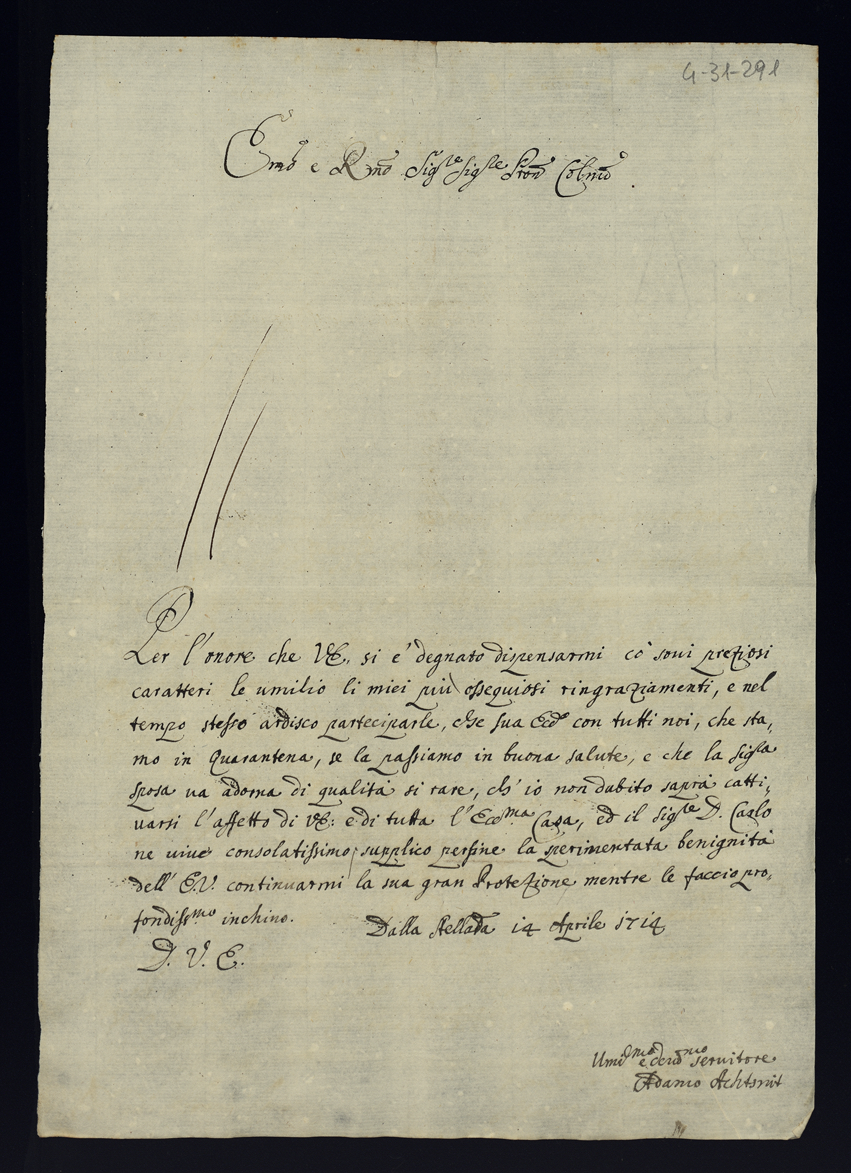 4-31-291
Em̃o e Rm̃o Sig.re Sig.re Pron̄ Colm̃o
Per l'onore che VE. si e' degnato dispensarmi cò soui preziosi
caratteri le umilio li miei più ossequiosi ringraziamenti, e nel
tempo stesso ardisco parteciparle, che sua Ecc̃ con tutti noi, che sta,
mo in Quarantena, se la passiamo in buona salute, e che la sig.ra
sposa va adorna di qualità si rare, ch' io non dubito saprà catti,
uarsi l'affetto di VE: e di tutta l'Ecc.ma Casa, ed il sig.re D. Carlo
ne uiue consolatissimo; supplico persine la sperimentata benignità
dell' E.V. continuarmi la sua gran Protezione mentre le faccio pro,
fondiss.mo inchino. Dalla Stellada 14 Aprile 1714
D. V. E.
Umil.mo e deuo.mo seruitore
Adamo Achtsnit